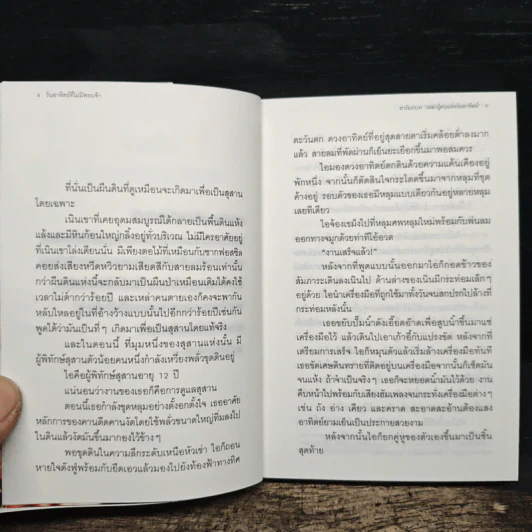 ๘ วันอาทิตย์ที่ไม่มีพระเจ้า
ที่นั่นเป็นผืนดินที่ดูเหมือนจะเกิดมาเพื่อเป็นสุสาน
โดยเฉพาะ
เนินเขาที่เคยอุดมสมบูรณ์ได้กลายเป็นพื้นดินแห้ง
แล้งและมีหินก้อนใหญ่กลิ้งอยู่ทั่วบริเวณ ไม่มีใครอาศัยอยู่
ที่เนินเขาโล่งเตียนนั่น มีเพียงตอไม้ที่เหมือนกับซากฟอสซิล
คอยส่งเสียงหวีดหวิวยามเสียดสีกับสายลมร้อนเท่านั้น
กว่าผืนดินแห่งนี้จะกลับมาเป็นผืนป่าเหมือนเดิมได้คงใช้
เวลาไม่ต่ำกว่าร้อยปี และเหล่าคนตายเองก็คงจะพากัน
หลับใหลอยู่ในที่อ้างว้างแบบนั้นไปอีกกว่าร้อยปีเช่นกัน
พูดได้ว่ามันเป็นที่ๆ เกิดมาเพื่อเป็นสุสานโดยแท้จริง
และในตอนนี้ ที่มุมหนึ่งของสุสานแห่งนั้น มี
ผู้พิทักษ์สุสานตัวน้อยคนหนึ่งกำลังเหวี่ยงพลั่วขุดดินอยู่
ไอคือผู้พิทักษ์สุสานอายุ 12 ปี
แน่นอนว่างานของเธอก็คือการดูแลสุสาน
ตอนนี้เธอกำลังขุดหลุมอย่างตั้งอกตั้งใจ เธออาศัย
หลักการของคานดีดคานงัดโดยใช้พลั่วขนาดใหญ่ทิ่มลงไป
ในดินแล้วงัดมันขึ้นมากองไว้ข้างๆ
พอขุดดินในความลึกระดับเหนือหัวเข่า ไอก็ถอน
หายใจดังฟู่พร้อมกับยืดเอวแล้วมองไปยังท้องฟ้าทางทิศ
ตะวันตก ดวงอาทิตย์ที่อยู่สุดสายตาเริ่มคล้อยต่ำลงมาก
แล้ว สายลมที่พัดผ่านก็เย็นยะเยือกขึ้นมาพอสมควร
ไอมองดวงอาทิตย์ตกดินด้วยความแค้นเคืองอยู่
พักหนึ่ง จากนั้นก็ตัดสินใจกระโดดขึ้นมาจากหลุมที่ขุด
ค้างอยู่ รอบตัวของเธอมีหลุมแบบเดียวกันอยู่หลายหลุม
เลยทีเดียว
ไอจ้องเขม็งไปที่หลุมศพหลุมใหม่พร้อมกับพ่นลม
ออกทางจมูกด้วยท่าทีโอ้อวด
"งานเสร็จแล้ว!"
หลังจากที่พูดแบบนั้นออกมาไอก็กอดข้าวของ
สัมภาระเดินลงเนินไป ด้านล่างของเนินมีกระท่อมเล็กๆ
อยู่ด้วย ไอนำเครื่องมือที่ถูกใช้มาทั้งวันจนสกปรกไปล้างที่
กระท่อมหลังนั้น
เธอขยับปั๊มน้ำดังเอี๊ยดอ๊าดเพื่อสูบน้ำขึ้นมาแช่
เครื่องมือไว้ แล้วเดินไปเอาเก้าอี้กับแปรงขัด หลังจากที่
เตรียมการเสร็จ ไอก็หมุนตัวแล้วเริ่มล้างเครื่องมือทันที
เธอขัดเศษดินทรายที่ติดอยู่บนเครื่องมือจากนั้นก็เช็ดมัน
จนแห้ง ถ้าจำเป็นจริงๆ เธอก็จะหยอดน้ำมันไว้ด้วย งาน
คืบหน้าไปพร้อมกับเสียงฮัมเพลงจนกระทั่งเครื่องมือต่างๆ
เช่น ถัง อ่าง เคียว และคราด สะอาดสะอ้านต้องแสง
อาทิตย์ยามเย็นเป็นประกายสวยงาม
หลังจากนั้นไอก็ยกคู่หูของตัวเองขึ้นมาเป็นชิ้น
สุดท้าย